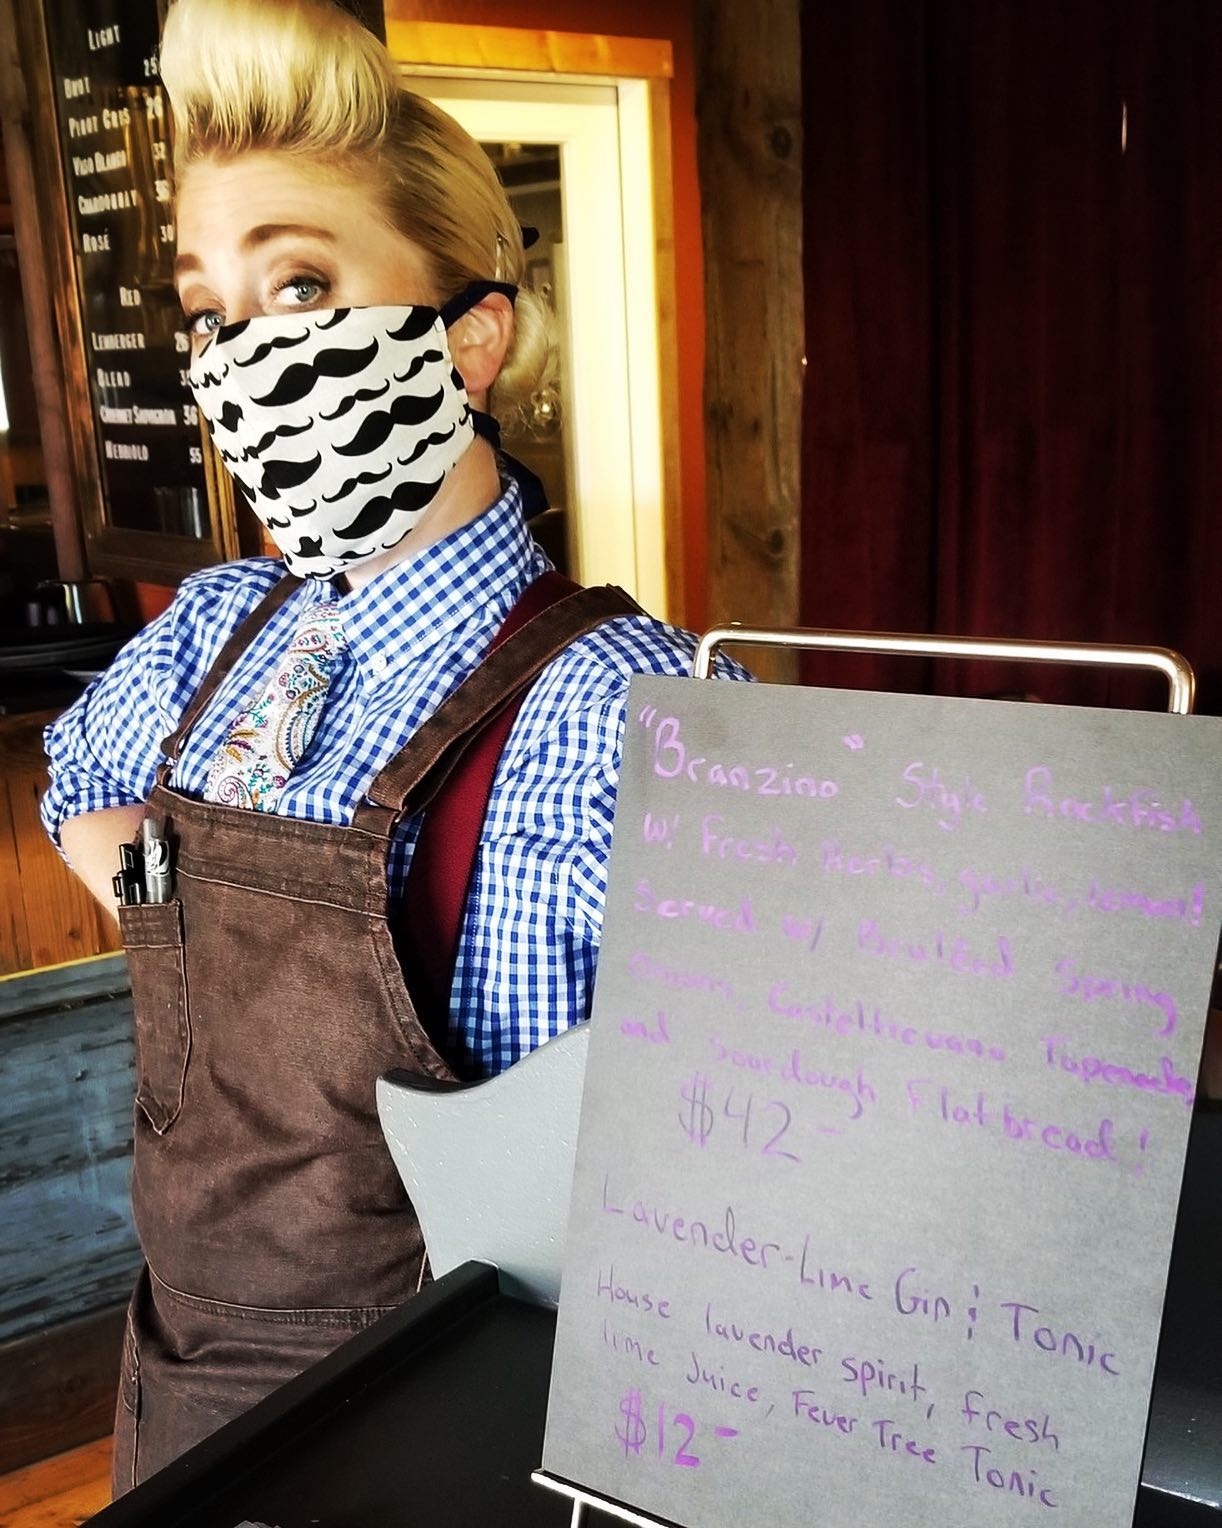 LIGHT
BRUT 25
PINOT GRIS 26
VIGO BLANCO 32
CHARDONNAY 36
ROSÉ 30
RED
LEMBERGER 25
BLEND
CABERNET SAUVIGNON 36
NEBBIOLO 55
"Branzino" Style Rockfish
w/ Fresh Herbs, garlic, lemon!
Served w/ Bruléed Spring
onions, Castelvetrano Tapenade,
and Sourdough Flatbread!
$42-
Lavender-Lime Gin & Tonic
House lavender spirit, fresh
lime Juice, Fever Tree Tonic
$12-